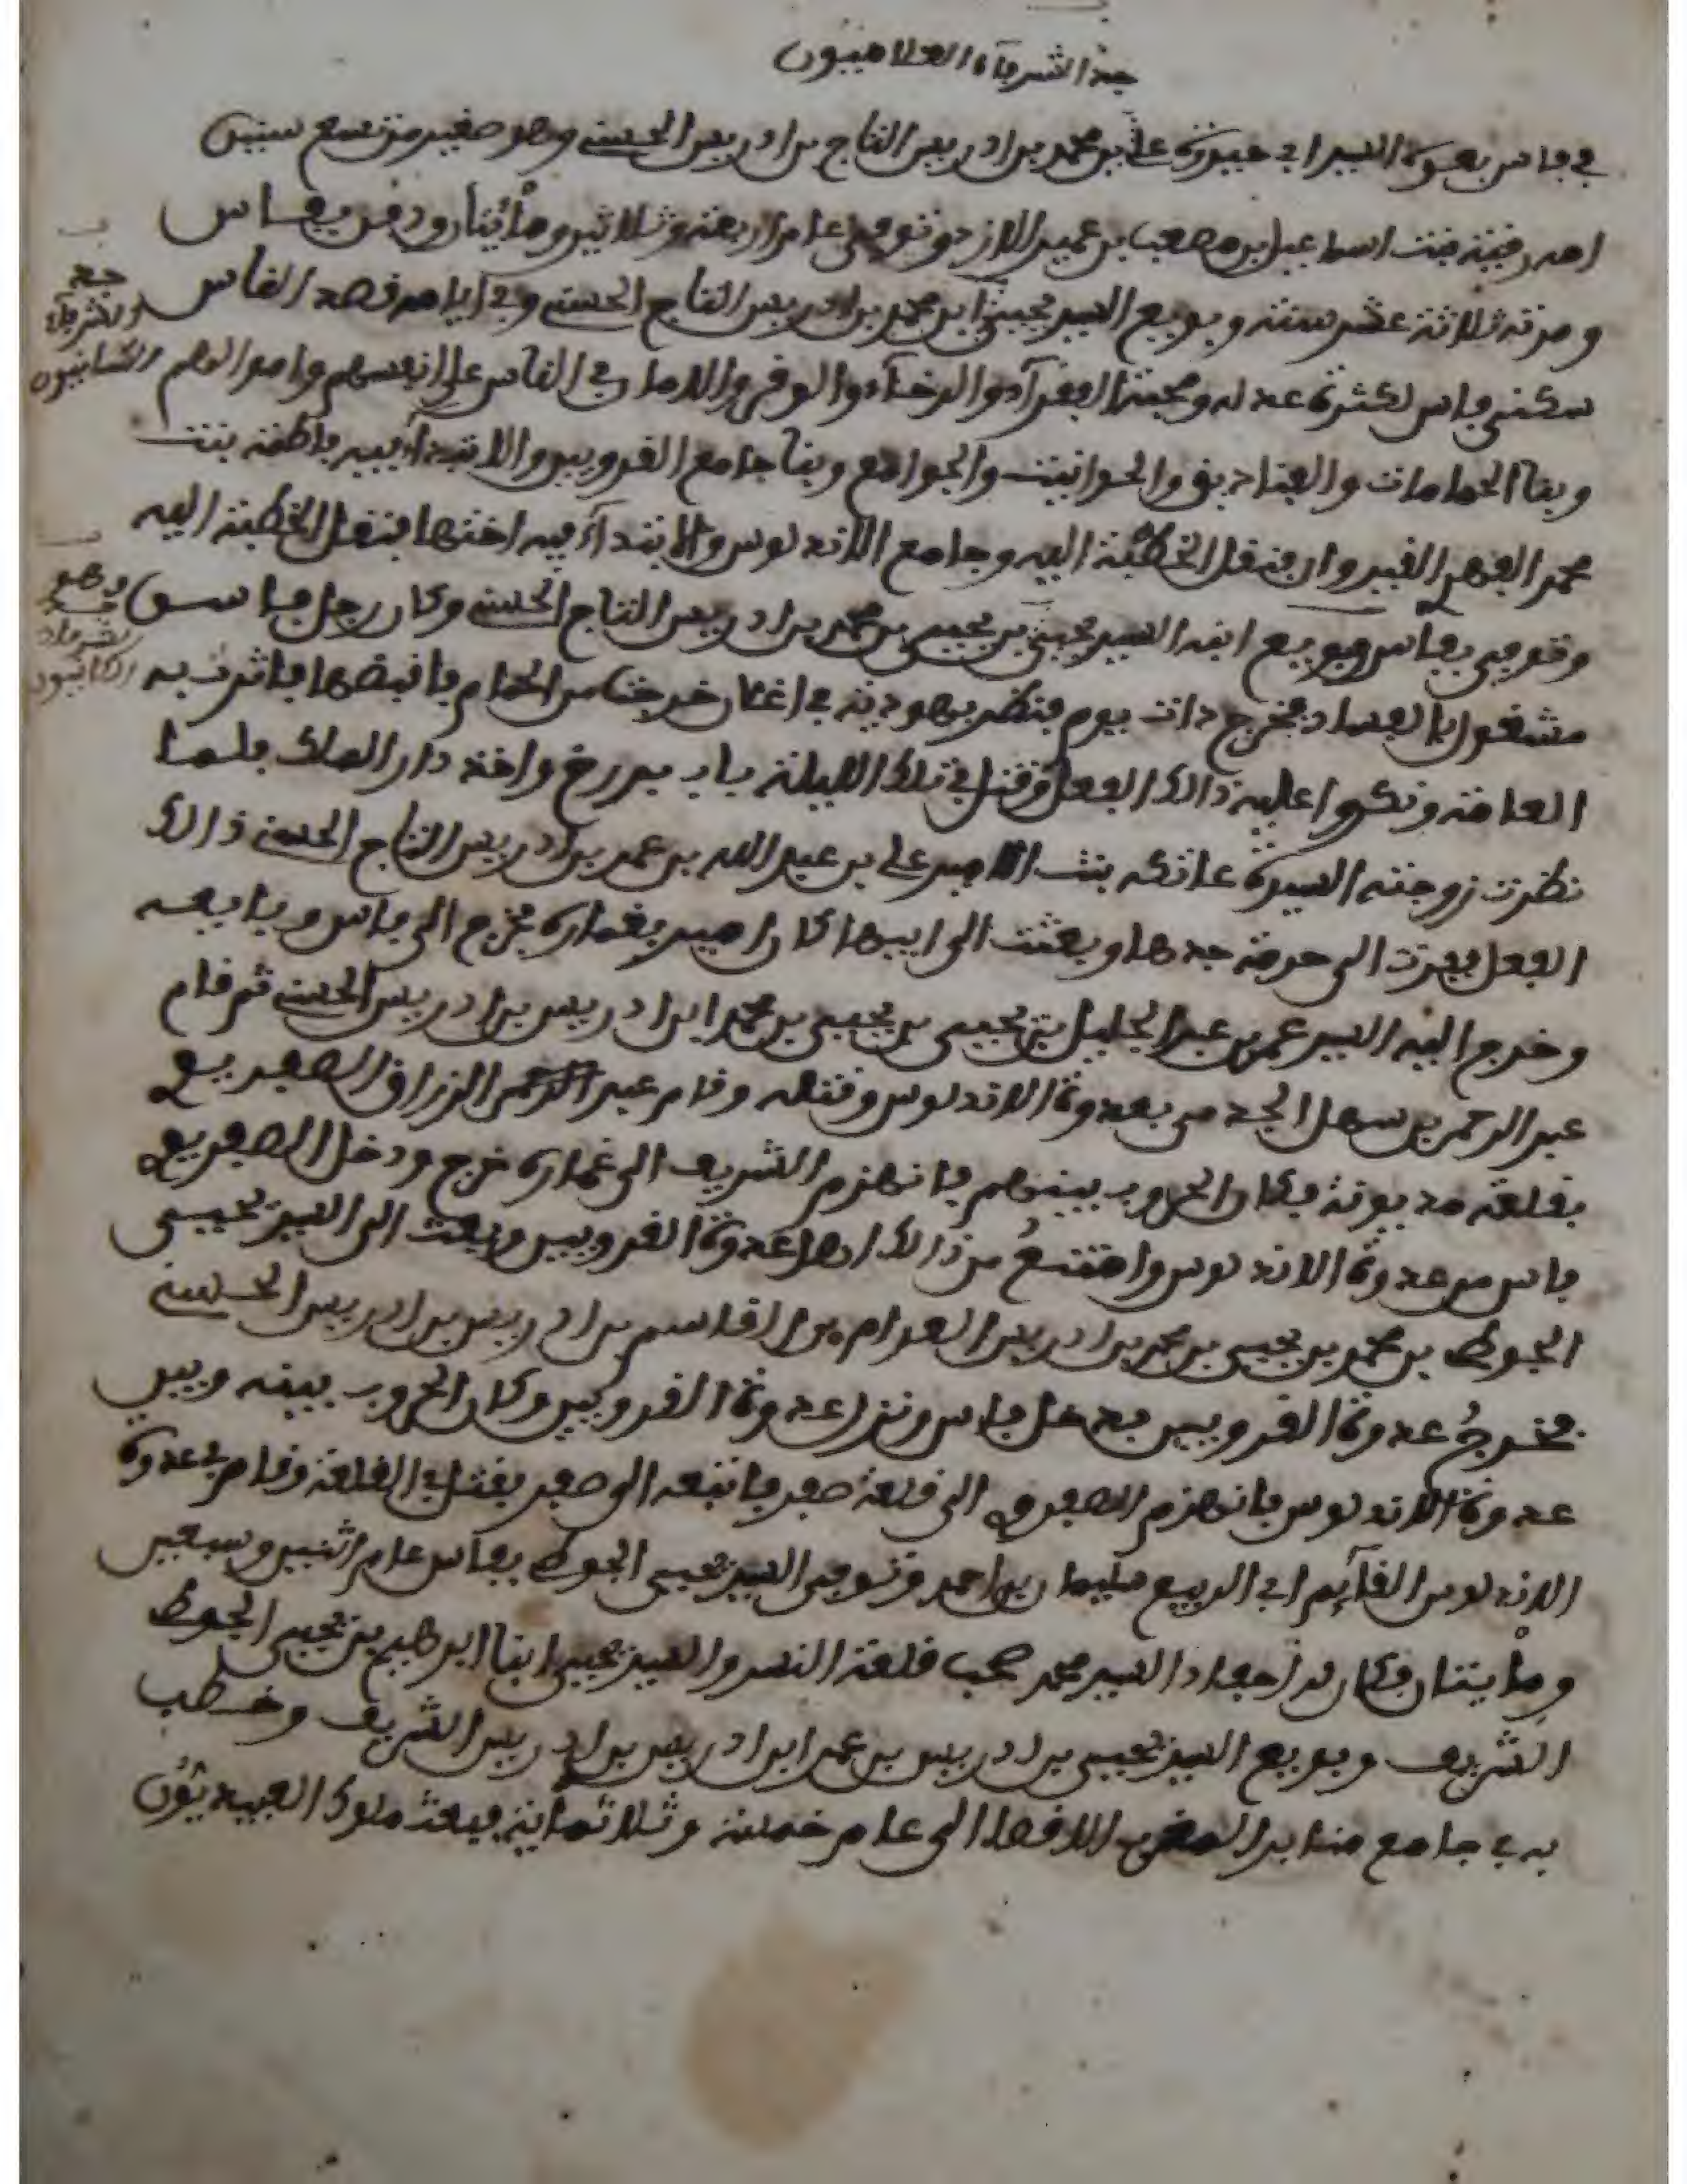 جد الشرفاء العلاميون
في فاس بعدوة السيد ابي حيدرة علي بن محمد بن ادريس التاج بن ادريس الحسني وهو صغير من تسع سنين
امه رقية بنت اسماعيل بن مصعب بن عمير الازدي وتوفي عام اربعة وثلاثين ومأتيان ودفن بفاس
ومدته ثلاثة عشر سنة وبويع السيد يحيى ابن محمد بن ادريس التاج الحسني وفي ايامه قصد الناس
جد
الشرفاء
الكتانيون
سكنى فاس لكثرة عدله ومحبة الفقرآء والرخآء والوفر والامان في الناس على انفسهم واموالهم
وبنآ الحمامات والفنادق والحوانيت والجوامع وبنآ جامع القرويين والابتدآء فيه فاطمة بنت
محمد الفهر القيروان فنقل الخطبة اليه وجامع الاندلوس والابتدآء فيه اختها فنقل الخطبة اليه
وتوفي بفاس وبويع ابنه السيد يحيى بن يحيى بن محمد بن ادريس التاج الحسني وكان رجل فاسق
وهو
جد
الشرفاء
الكتانيون
مشغول بالفساد فخرج ذات يوم فنظر يهودية في اغكان خرجت من الحمام فاقبضها فاثرت به
العامة ونكروا عليه ذالك الفعل وقتل في تلك الليلة باب بريرخ واخذ دار الملك فلما
نظرت زوجته السيدة عاتكه بنت الامير علي بن عبد الله بن عمر بن ادريس التاج الحسني ذالك
الفعل ففرت الى حرمة جدها وبعثت الى ابيها كان امير بغمارة فخرج الى فاس وبايعه
وخرج اليه السيد عمر بن عبد الجليل بن يحيى بن يحيى بن محمد ابن ادريس بن ادريس الحسني ثم قام
عبد الرحمن بن سهل الجد مي بعدوة الاندلوس وقتله وقام عبد الرزاق الصفريع
بقلعة مديونة فكان الحروب بينهم فانهزم الشريف الى غمارة خرج ودخل الصفريع
فاس من عدوة الاندلوس وامتنع من ذالك اهل عدوة القرويين وبعث الى السيد يحيى
الجوطي بن محمد بن يحيى بن محمد بن ادريس العوام بن القاسم بن ادريس بن ادريس الحسني
فخرج عدوة القرويين فدخل فاس ونزل عدوة القرويين وكان الحروب بينه وبين
عدوة الاندلوس فانهزم الصفرو الى قلعة صفر فاتبعه الى صفر فقتل في القلعة وقام في عدوة
الاندلوس القآئم ابي الربيع سليمان بن احمد وتوفي السيد يحيى الجوطي بفاس عام اثنين وسبعين
ومأيتان وكان له احفاد السيد محمد صحب قلعة النسر والسيد يحيى ابنا ابرهيم بن يحيى الجوطي
الشريف وبويع السيد يحيى بن ادريس بن عمر ابن ادريس بن ادريس الشريف وخطب
به في جامع منابر المغرب الاقصا الى عام خمسة وثلاثماية فبعث ملوك العبيديون